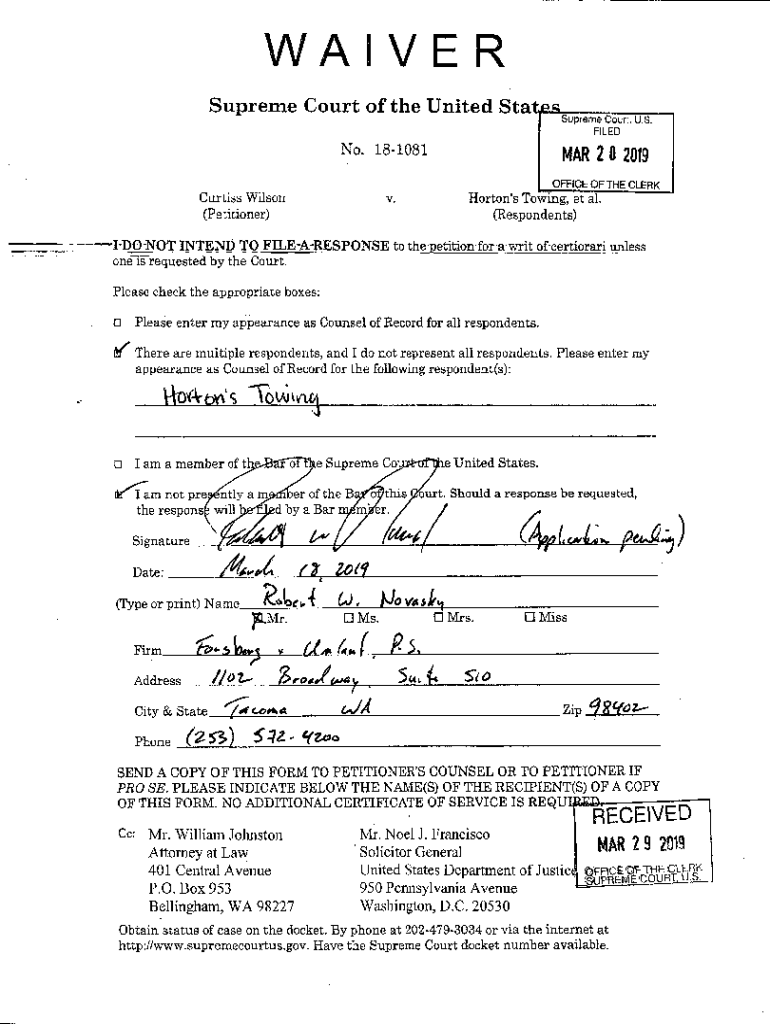 WAIVER
Supreme Court of the United States
Supreme Court, U.S.
FILED
No. 18-1081
MAR 20 2019
OFFICE OF THE CLERK
Curtiss Wilson v. Horton's Towing, et al.
(Petitioner) (Respondents)
I DO NOT INTEND TO FILE A RESPONSE to the petition for a writ of certiorari unless
one is requested by the Court.
Please check the appropriate boxes:
Please enter my appearance as Counsel of Record for all respondents.
There are multiple respondents, and I do not represent all respondents. Please enter my
appearance as Counsel of Record for the following respondent(s):
Horton's Towing
I am a member of the Bar of the Supreme Court of the United States.
I am not presently a member of the Bar of this Court. Should a response be requested,
the response will be filed by a Bar member.
Signature (Application pending)
Date: March 18, 2019
(Type or print) Name Robert W. Novasky
Mr. Ms. Mrs. Miss
Firm Forsberg + Umlauf, P.S.
Address 1102 Broadway Suite 510
City & State Tacoma WA Zip 98402
Phone (253) 572-4200
SEND A COPY OF THIS FORM TO PETITIONER'S COUNSEL OR TO PETITIONER IF
PRO SE. PLEASE INDICATE BELOW THE NAME(S) OF THE RECIPIENT(S) OF A COPY
OF THIS FORM. NO ADDITIONAL CERTIFICATE OF SERVICE IS REQUIRED.
RECEIVED
MAR 29 2019
OFFICE OF THE CLERK
SUPREME COURT, U.S.
Cc: Mr. William Johnston Mr. Noel J. Francisco
Attorney at Law Solicitor General
401 Central Avenue United States Department of Justice
P.O. Box 953 950 Pennsylvania Avenue
Bellingham, WA 98227 Washington, D.C. 20530
Obtain status of case on the docket. By phone at 202-479-3034 or via the internet at
http://www.supremecourtus.gov. Have the Supreme Court docket number available.